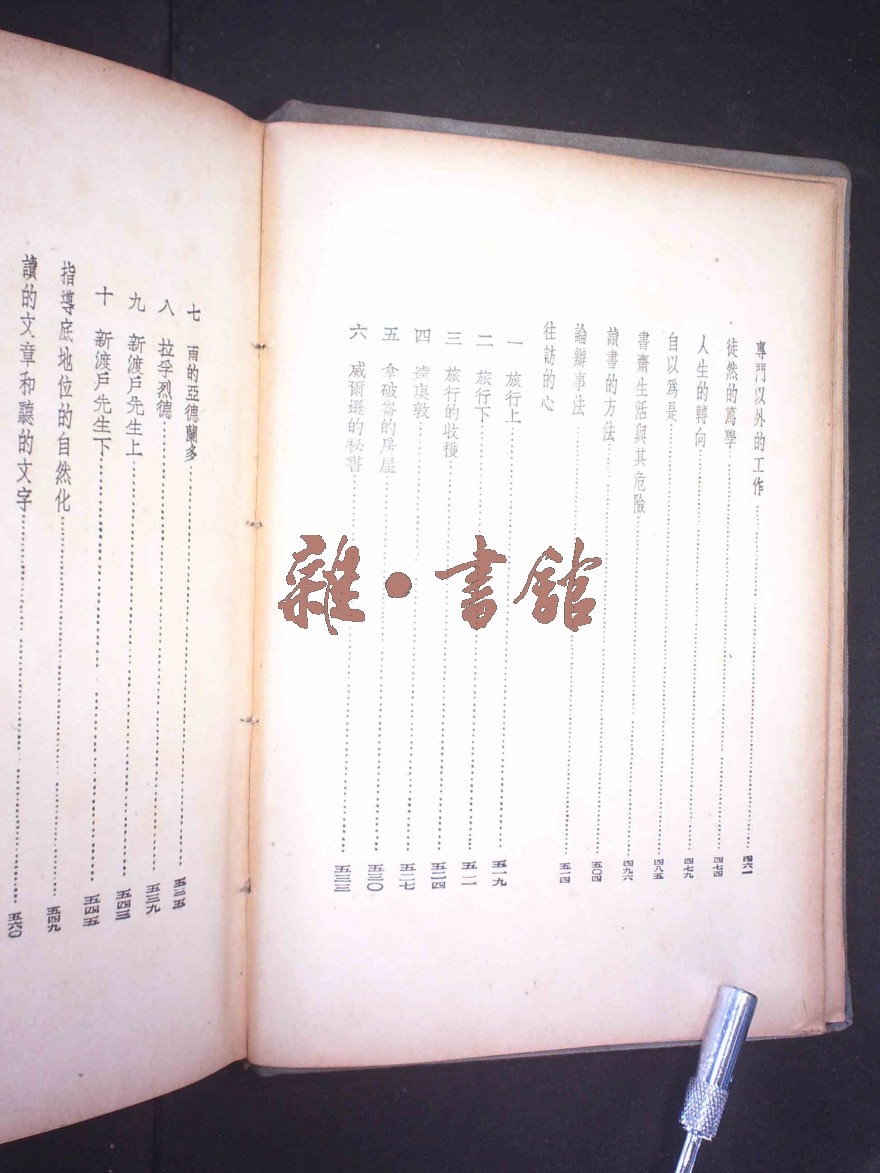 專門以外的工作……四六一
徒然的篤學……四七四
人生的轉向……四七九
自以爲是……四八五
書齋生活與其危險……四九六
讀書的方法……五〇四
論辦事法……五一四
往訪的心
一 旅行上……五一九
二 旅行下……五二一
三 旅行的收穫……五二四
四 達庚敦……五二七
五 拿破崙的房屋……五三〇
六 威爾遜的秘書……五三三
七 雨的亞德蘭多……五三五
八 拉孚烈德……五三九
九 新渡戶先生上……五四三
十 新渡戶先生下……五四五
指導底地位的自然化……五四九
讀的文章和聽的文字……五六〇
雜·書館